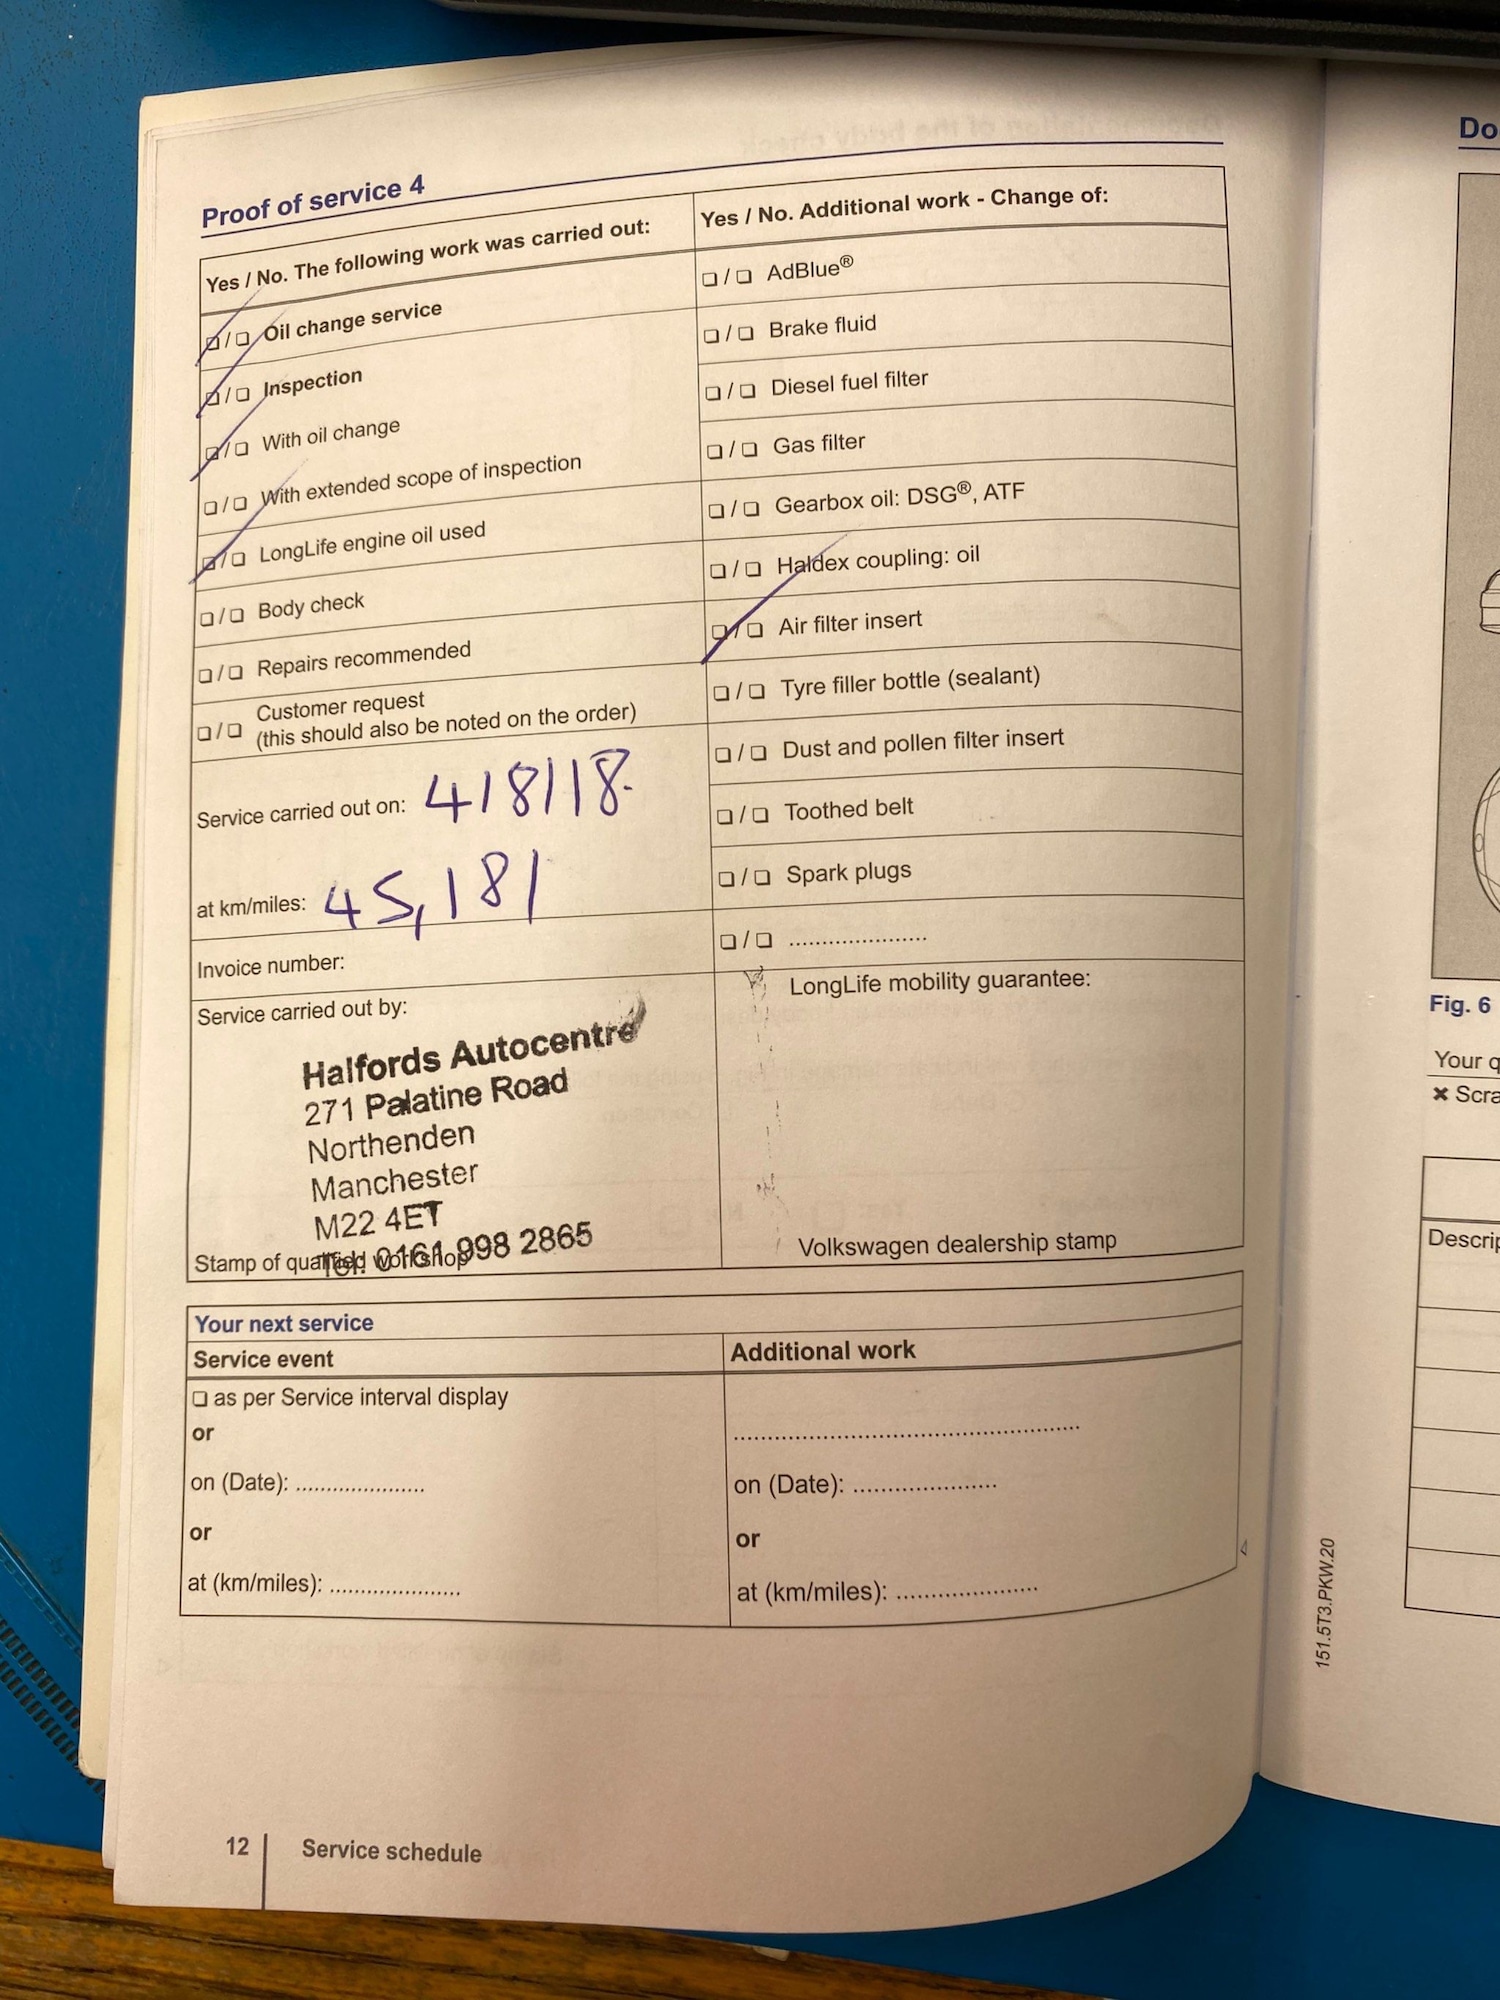 Proof of service 4
Yes / No. The following work was carried out:
❏ / ❏ Oil change service
❏ / ❏ Inspection
❏ / ❏ With oil change
❏ / ❏ With extended scope of inspection
❏ / ❏ LongLife engine oil used
❏ / ❏ Body check
❏ / ❏ Repairs recommended
❏ / ❏ Customer request
(this should also be noted on the order)
Service carried out on: 4/8/18.
at km/miles: 45,181
Invoice number:
Service carried out by:
Halfords Autocentre
271 Palatine Road
Northenden
Manchester
M22 4ET
Tel: 0161 998 2865
Stamp of qualified workshop
Yes / No. Additional work - Change of:
❏ / ❏ AdBlue®
❏ / ❏ Brake fluid
❏ / ❏ Diesel fuel filter
❏ / ❏ Gas filter
❏ / ❏ Gearbox oil: DSG®, ATF
❏ / ❏ Haldex coupling: oil
❏ / ❏ Air filter insert
❏ / ❏ Tyre filler bottle (sealant)
❏ / ❏ Dust and pollen filter insert
❏ / ❏ Toothed belt
❏ / ❏ Spark plugs
❏ / ❏ ......................
LongLife mobility guarantee:
Volkswagen dealership stamp
Your next service
Service event
❏ as per Service interval display
or
on (Date): .....................
or
at (km/miles): .....................
Additional work
.......................................................
on (Date): .....................
or
at (km/miles): .....................
12 Service schedule
Do
Fig. 6
Your q
✖ Scra
Descrip
151.5T3.PKW.20